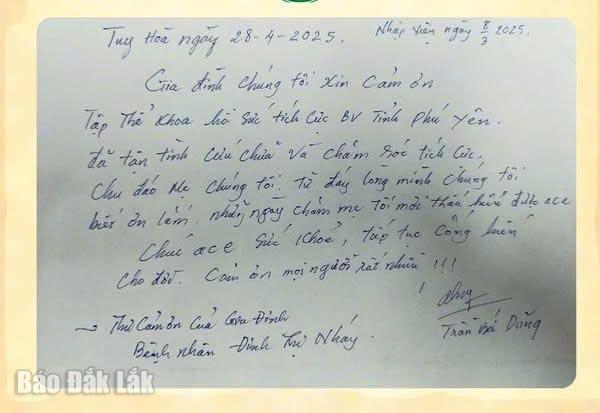 Tuy Hoà ngày 28-4-2025.
Nhập viện ngày 8/3 2025.
Gia đình chúng tôi xin cảm ơn
Tập thể khoa hồi sức tích cực BV Tỉnh Phú Yên.
đã tận tình cứu chữa và chăm sóc tích cực,
chu đáo mẹ chúng tôi. từ đáy lòng mình chúng tôi
biết ơn lắm. những ngày chăm mẹ tôi mới thấu hiểu được ace
Chúc ace sức khoẻ, tiếp tục cống hiến
cho đời. Cảm ơn mọi người rất nhiều!!!
→ Thư cảm ơn của Gia Đình
Bệnh nhân Đinh Thị Nháy.
Trần Bá Dũng
Báo Đắk Lắk